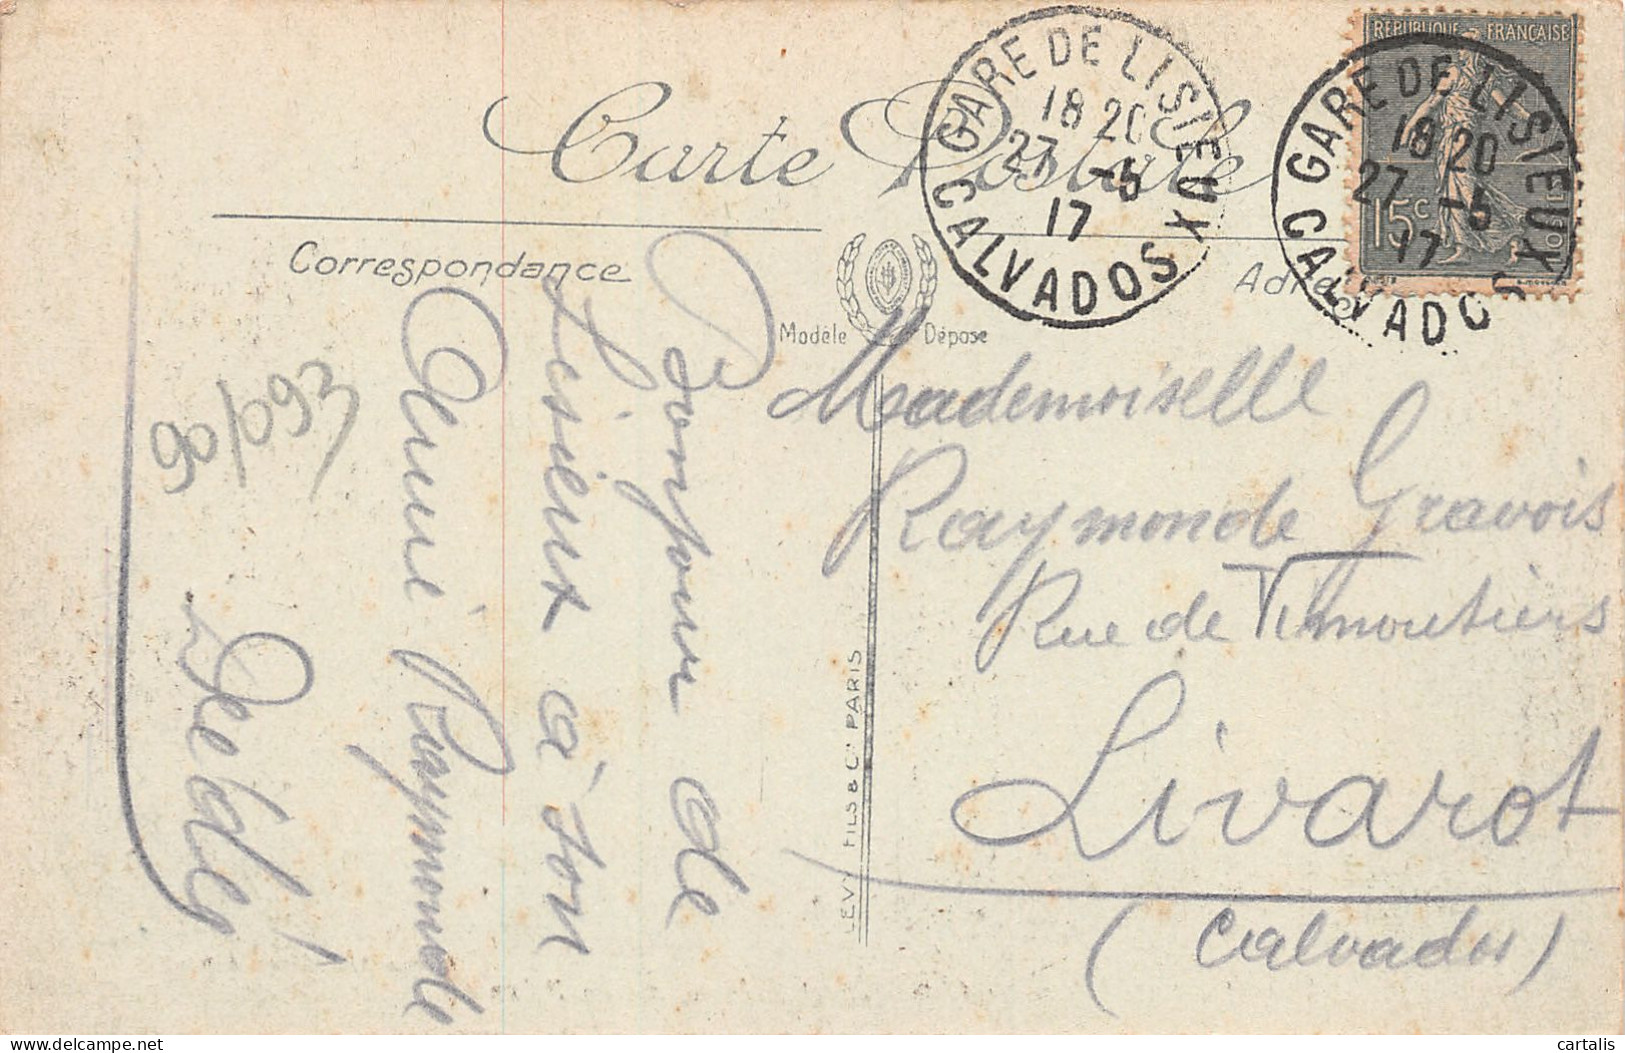 Carte Postale
Correspondance
Adresse
Modèle Déposé
RÉPUBLIQUE FRANÇAISE
15c
GARE DE LISIEUX
18 20
27 -5
17
CALVADOS
GARE DE LISIEUX
18 20
27 -5
17
CALVADOS
Bonjour de
Lisieux à son
Amie Raymonde
90/093
LEVY FILS & Cie PARIS
Mademoiselle
Raymonde Gravois
Rue de Vimoutiers
Livarot
(Calvados)
delcampe.net
cartalis